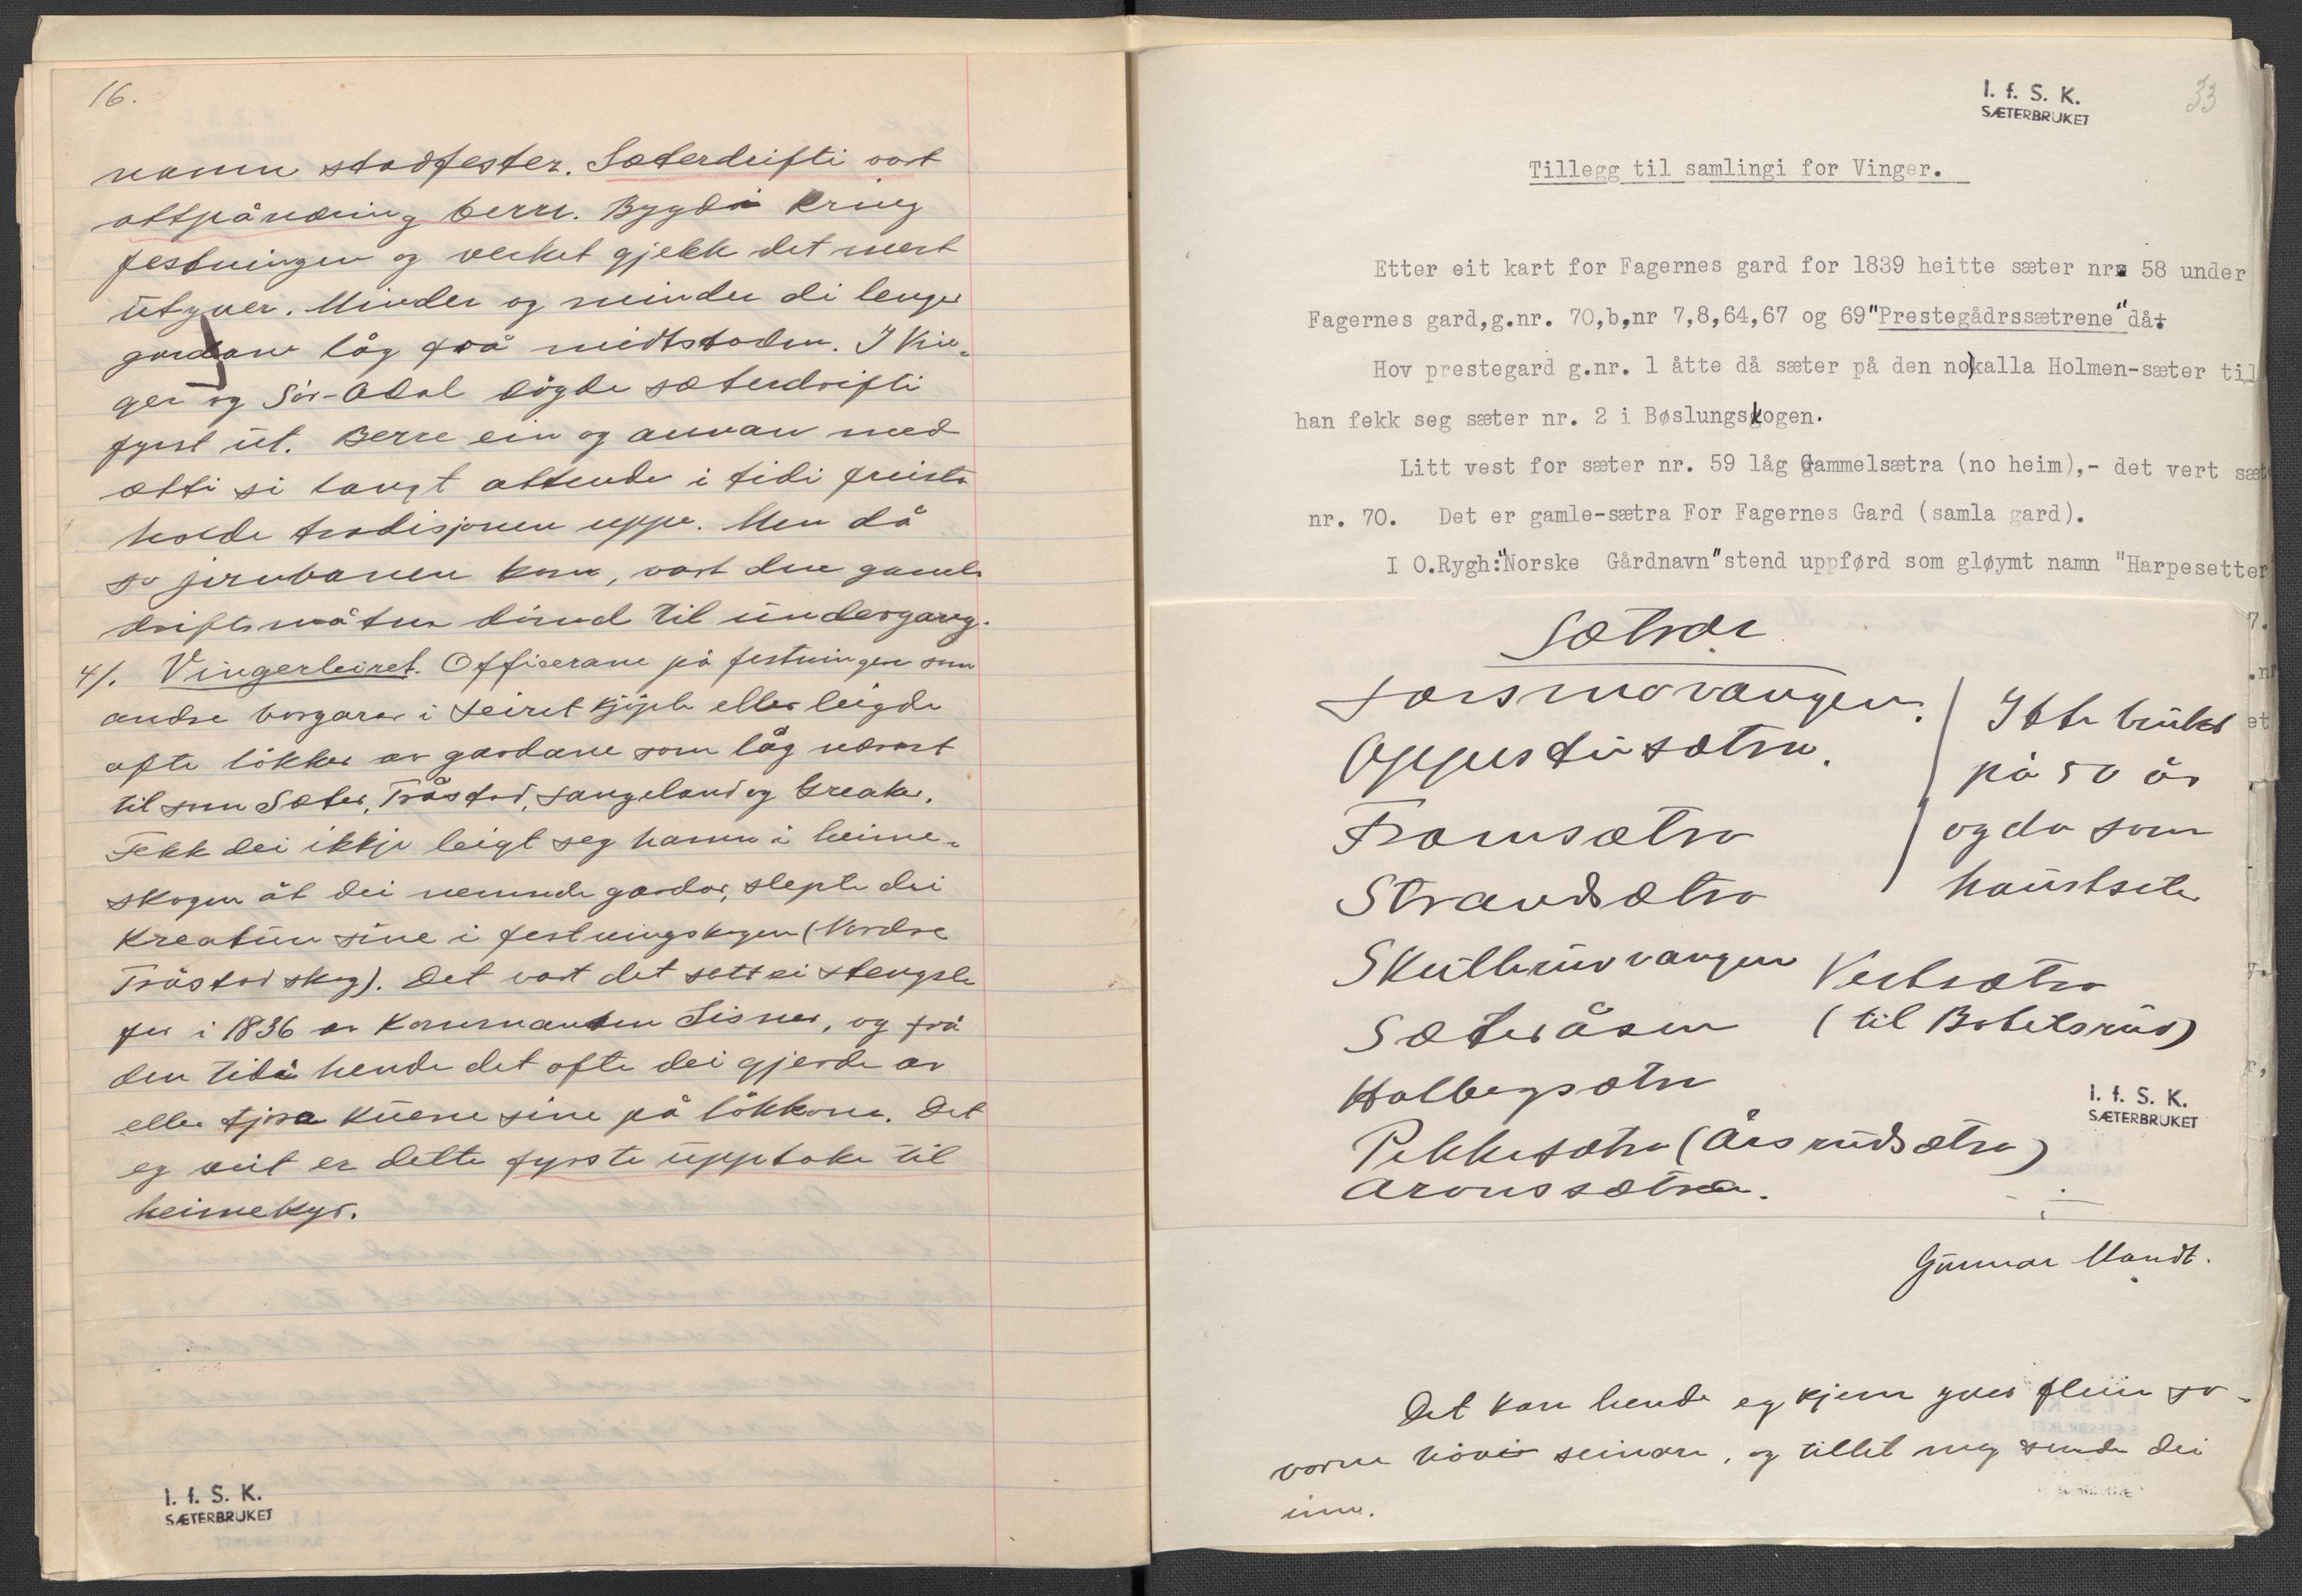 16.
namn stadfester. Sæterdrifti vart
attpånæring berre. Bygdi kring
festningen og verket gjekk det mest
utyver. Minder og minder di lenger
gardane låg frå midtstaden. I Vin-
ger og Sör-Odal døyde sæterdrifti
fyrst ut. Berre ein og annan med
ætti si langt attende i tidi freista
halde tradisjonen uppe. Men då
so jernbanen kom, vart den gamle
driftsmåten dömd til undergang.
4/. Vingerleiret. Officerane på festningen som
andre borgarar i Leiret kjöpte eller leigde
ofte lökker av gardane som låg nærast
til som Sæter, Tråstad, Langeland og Greaker.
Fekk dei ikkje leigt seg hamn i heime-
skogen åt dei nemnde gardar, slepte dei
kreaturi sine i festningskogen (Nordre
Tråstad skog). Det vart det sett ei stengsle
for i 1836 av Kommandten Sisner, og frå
den tidi hende det ofte dei gjerde av
eller tjora kuene sine på lökkone. Det
eg veit er dette fyrste upptake til
heimekyr.
I. f. S. K.
SÆTERBRUKET
I. f. S. K.
SÆTERBRUKET
33
Tillegg til samlingi for Vinger.
Etter eit kart for Fagernes gard for 1839 heitte sæter nr. 58 under
Fagernes gard,g.nr. 70,b,nr 7,8,64,67 og 69"Prestegådrssætrene"då.
Hov prestegard g.nr. 1 åtte då sæter på den no kalla Holmen-sæter til
han fekk seg sæter nr. 2 i Bøslungskogen.
Litt vest for sæter nr. 59 låg Gammelsætra (no heim),- det vert sæt
nr. 70. Det er gamle-sætra For Fagernes Gard (samla gard).
I O.Rygh:"Norske Gårdnavn"stend uppførd som gløymt namn "Harpesetter
Sætrar
Larsmovangen.
Oppustusætra.
Framsætra
Strandsætra
Skulleruvvangen
Sæteråsen
Holbergsætra
Pekkesætra (Åsrudsætra)
Aronssætra.
Ikke brukt
på 50 år
og da som
haustseter
Vestsætra
(til Bobelsrud)
I. f. S. K.
SÆTERBRUKET
Gunnar Mandt.
Det kan hende eg kjem yver fleire so-
vorne növi seinare, og tillet meg sende dei
inn.